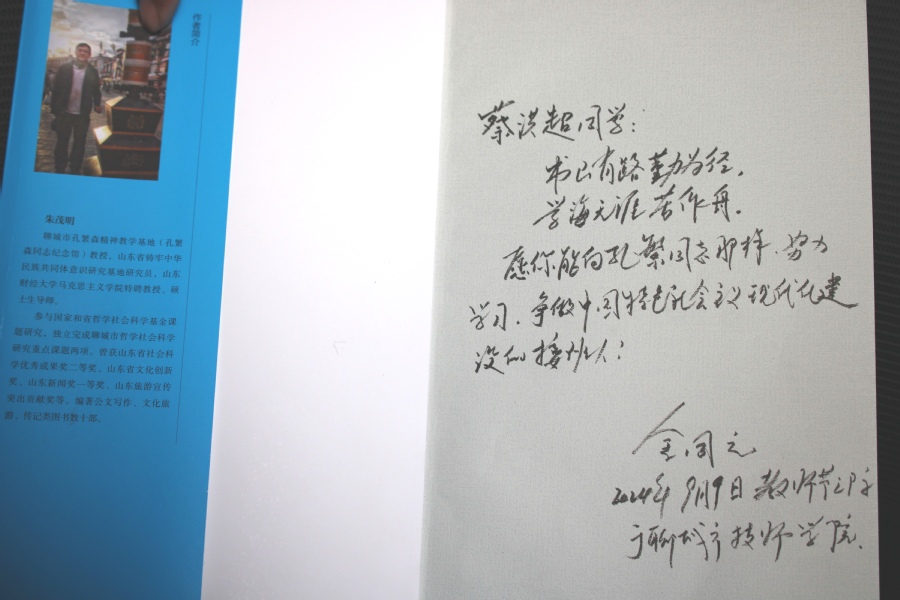 作者简介
朱茂明
聊城市孔繁森精神教学基地（孔繁
森同志纪念馆）教授、山东省铸牢中华
民族共同体意识研究基地研究员、山东
财经大学马克思主义学院特聘教授、硕
士生导师。
参与国家和省哲学社会科学基金课
题研究，独立完成聊城市哲学社会科学
研究重点课题两项。曾获山东省社会科
学优秀成果奖二等奖、山东省文化创新
奖、山东新闻奖一等奖、山东旅游宣传
突出贡献奖等。编著公文写作、文化旅
游、传记类图书数十部。
蔡洪超同学：
书山有路勤为径，
学海无涯苦作舟。
愿你能向孔繁同志那样，努力
学习，争做中国特色社会主义现代化建
设的接班人！
2024年9月9日教师节
于聊城市技师学院。